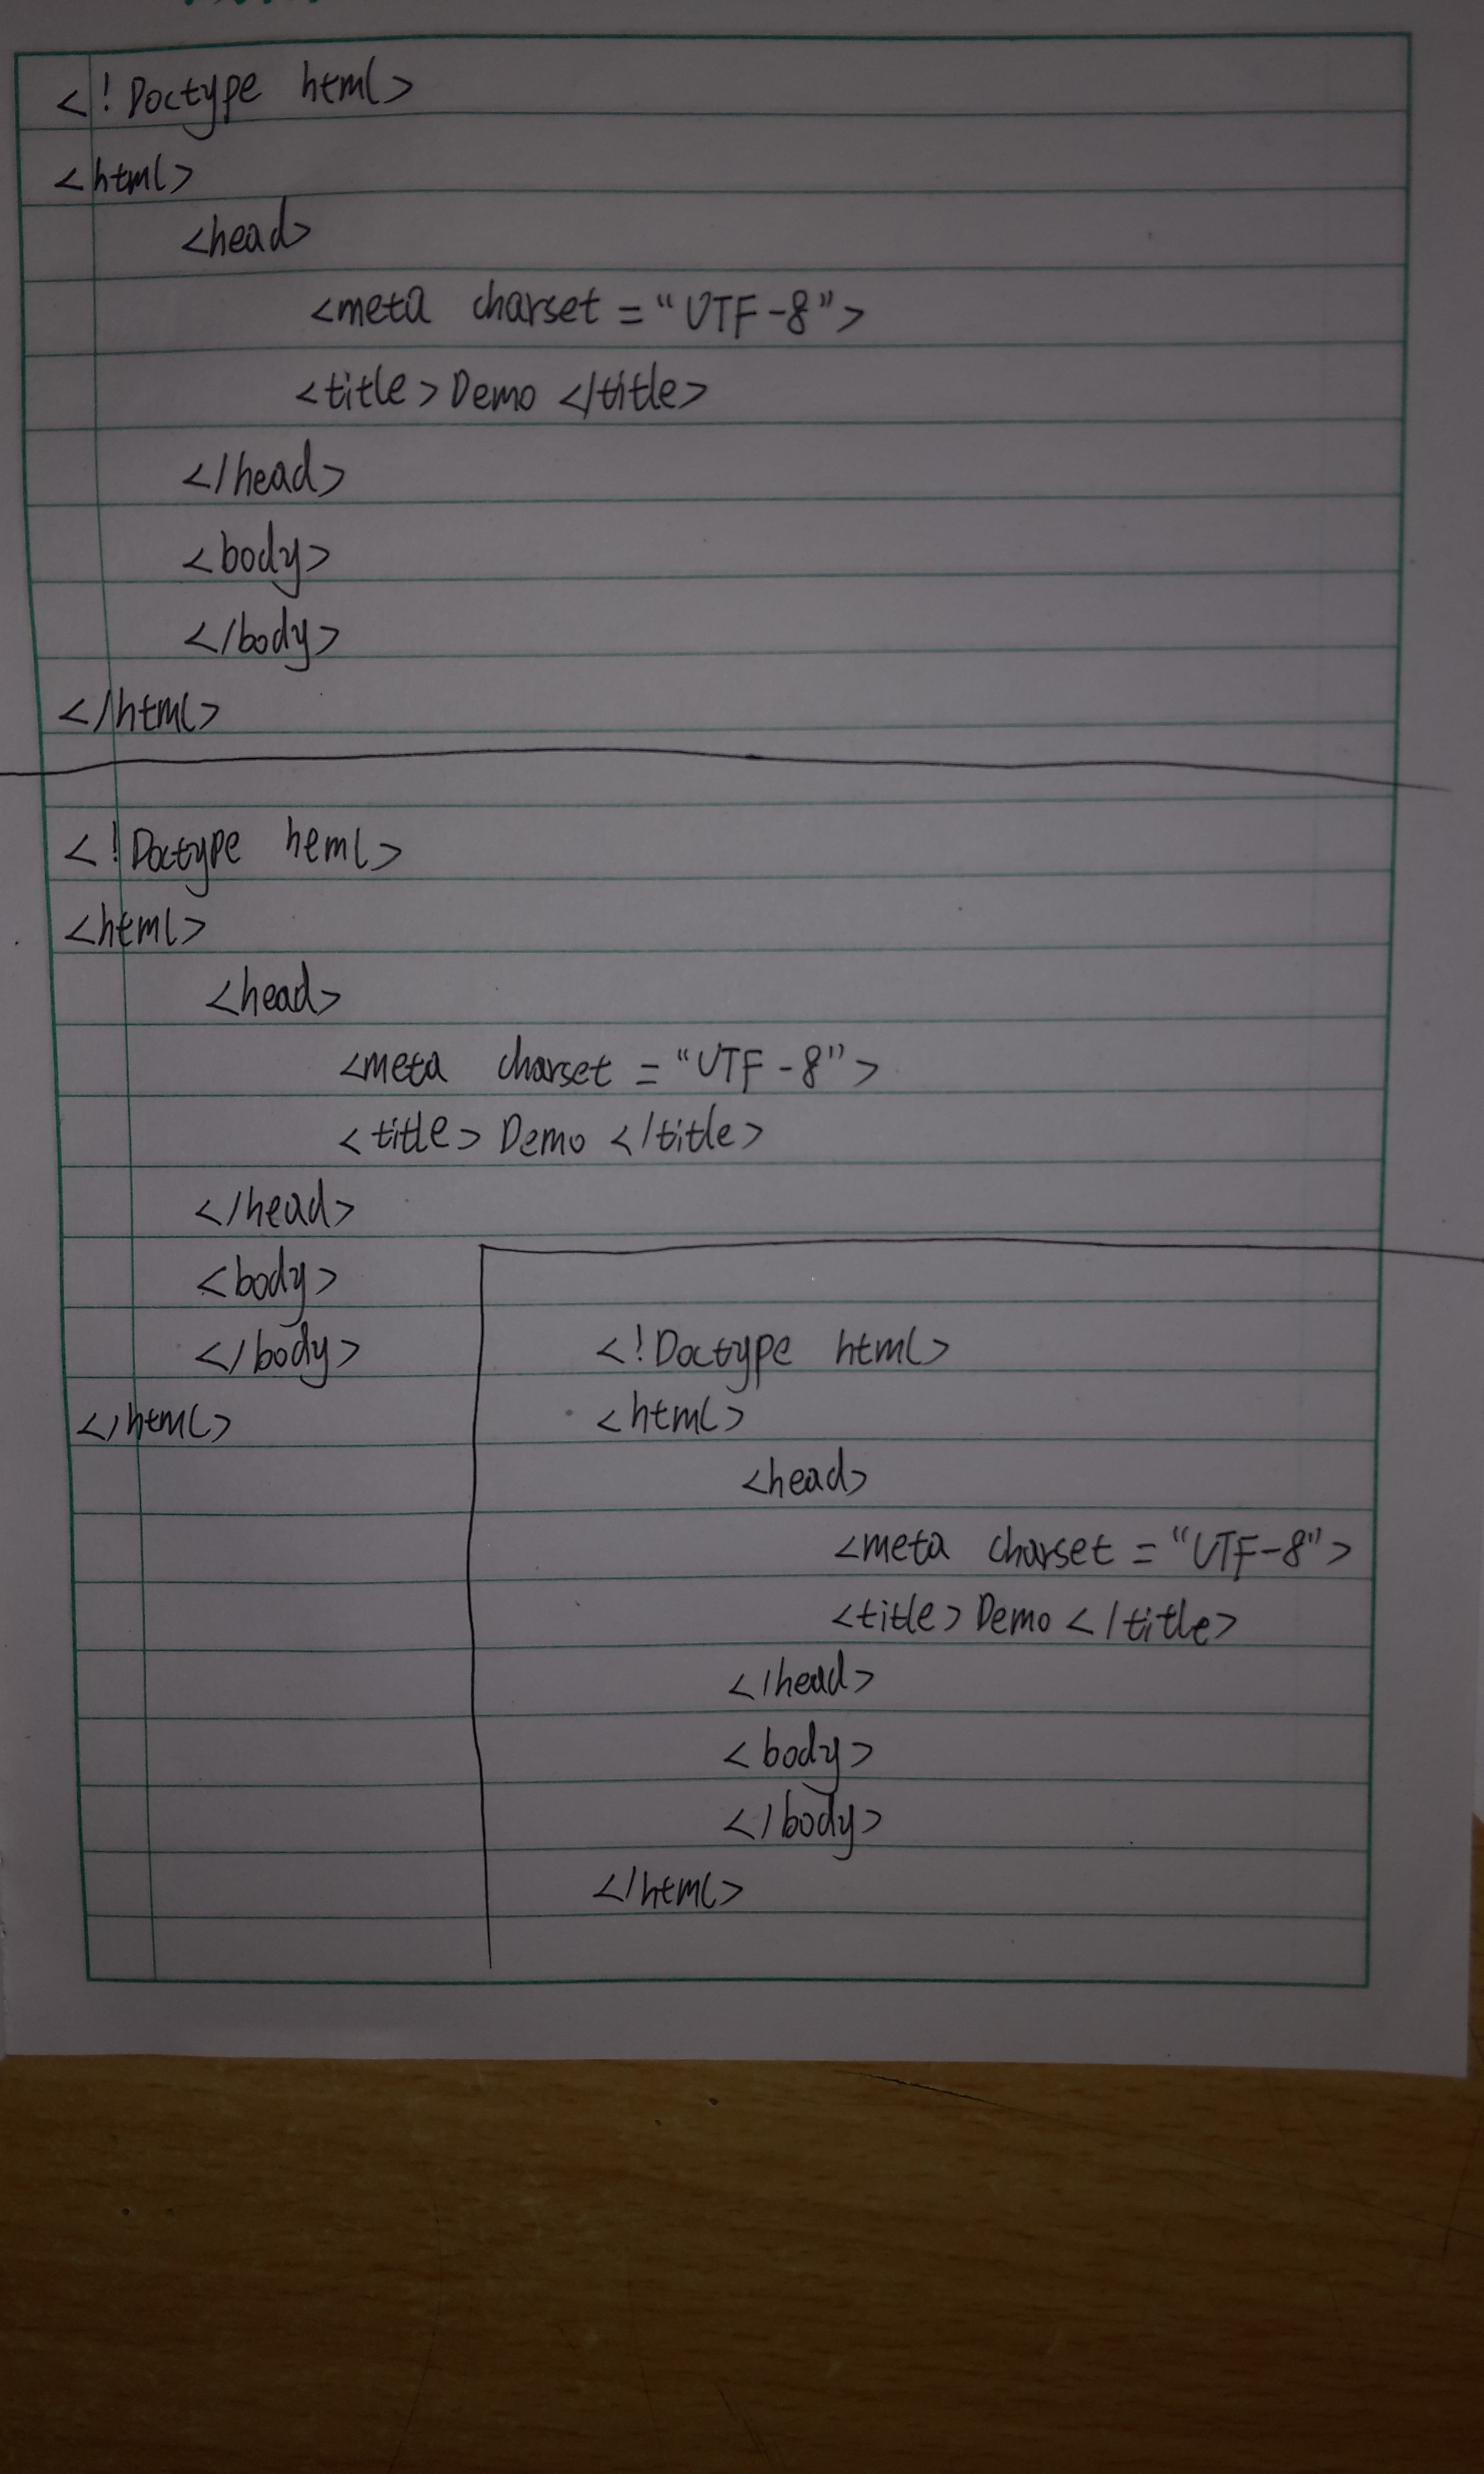 <!Doctype html>
<html>
<head>
<meta charset = "UTF-8">
<title>Demo </title>
</head>
<body>
</body>
</html>
<!Doctype heml>
<html>
<head>
<meta charset = "UTF-8">
<title> Demo </title>
</head>
<body>
</body>
</html>
<!Doctype html>
<html>
<head>
<meta charset = "UTF-8">
<title> Demo </title>
</head>
<body>
</body>
</html>